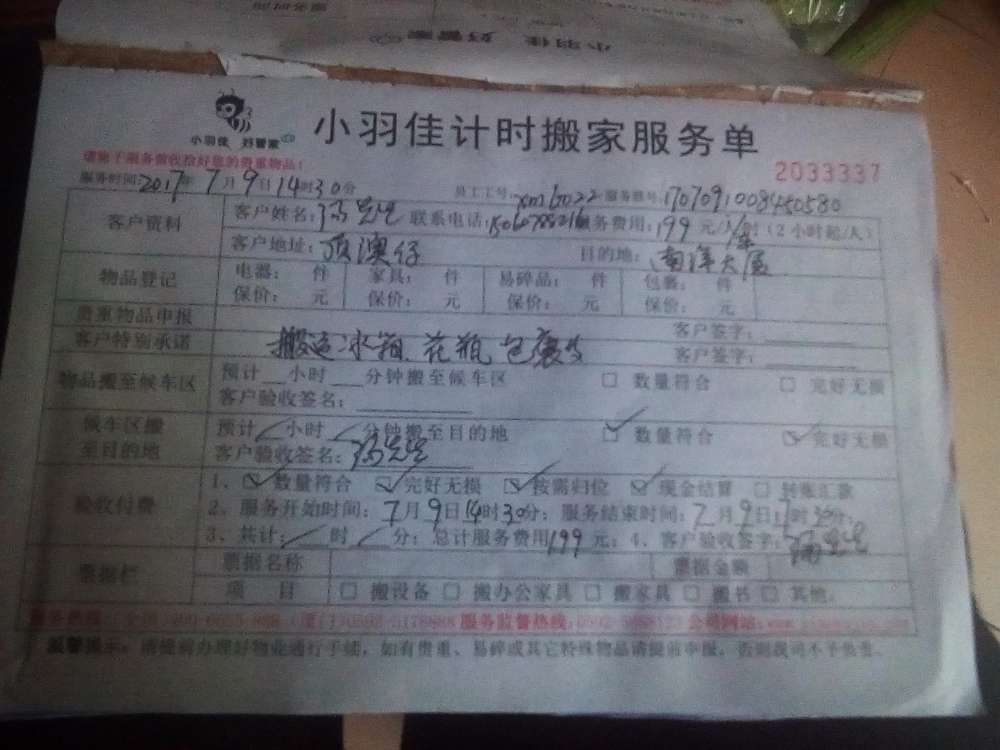 小羽佳 好管家
小羽佳 好管家
小羽佳计时搬家服务单
2033337
请您于服务前收拾好您的贵重物品！
服务时间:2017年7月9日14时30分 员工工号:xm16022 服务单号:
客户资料 客户姓名:冯先生 联系电话: 服务费用:199元/ /时(2小时起/人)
客户地址:顶澳仔 目的地:南洋大厦
物品登记 电器: 件 家具: 件 易碎品: 件 包裹: 件
保价: 元 保价: 元 保价: 元 保价: 元
贵重物品申报 客户签字:
客户特别承诺 搬运冰箱、花瓶、包裹 客户签字:
物品搬至候车区 预计__小时___分钟搬至候车区 □ 数量符合 □ 完好无损
客户验收签名:
候车区搬至目的地 预计 小时 分钟搬至目的地 ☑ 数量符合 ☑ 完好无损
客户验收签名:冯先生
验收付费 1、☑数量符合 ☑完好无损 ☑按需归位 ☑现金结算 □转账汇款
2、服务开始时间:7月9日14时30分; 服务结束时间:7月9日 时30分;
3、共计: 时 分; 总计服务费用199元; 4、客户验收签字:冯先生
票据栏 票据名称 票据金额
项 目 □ 搬设备 □ 搬办公家具 □ 搬家具 □ 搬书 □ 其他
服务监督热线: 公司网站:
温馨提示: 请提前办理好物业通行手续，如有贵重、易碎或其它特殊物品请提前申报，否则我司不予负责。